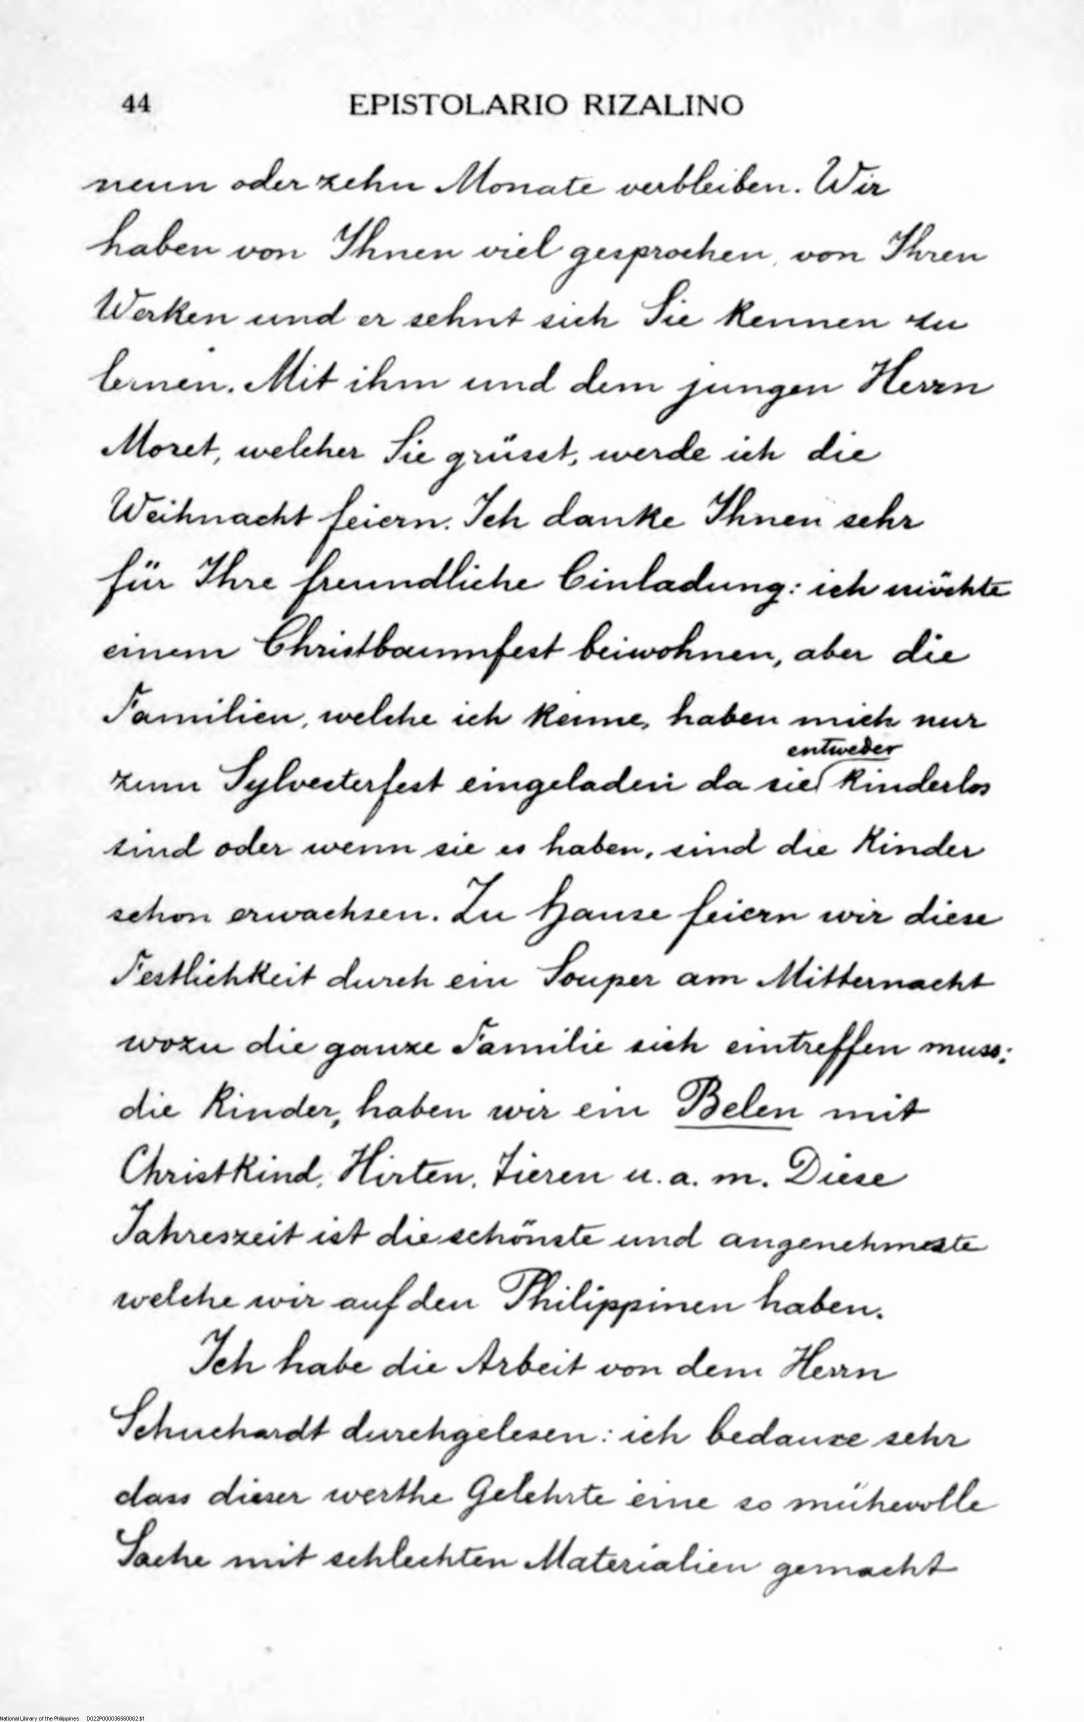 44 EPISTOLARIO RIZALINO
neun oder zehn Monate verbleiben. Wir
haben von Ihnen viel gesprochen, von Ihren
Werken und er sehnt sich Sie kennen zu
lernen. Mit ihm und dem jungen Herrn
Moret, welcher Sie grüsst, werde ich die
Weihnacht feiern. Ich danke Ihnen sehr
für Ihre freundliche Einladung: ich möchte
einem Christbaumfest beiwohnen, aber die
Familien, welche ich kenne, haben mich nur
entweder
zum Sylvesterfest eingeladen da sie kinderlos
sind oder wenn sie es haben, sind die Kinder
schon erwachsen. Zu Hause feiern wir diese
Festlichkeit durch ein Souper am Mitternacht
wozu die ganze Familie sich eintreffen muss:
die Kinder, haben wir ein Belen mit
Christkind, Hirten, Tieren u. a. m. Diese
Jahreszeit ist die schönste und angenehmste
welche wir auf den Philippinen haben.
Ich habe die Arbeit von dem Herrn
Schuchardt durchgelesen: ich bedaure sehr
dass dieser werthe Gelehrte eine so mühevolle
Sache mit schlechten Materialien gemacht
National Library of the Philippines